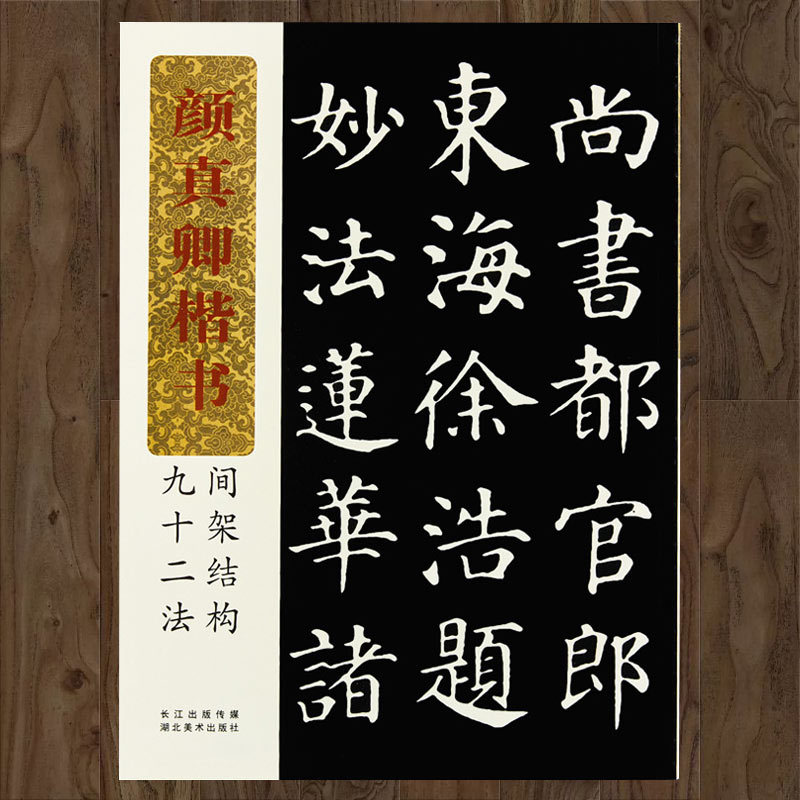 颜真卿楷书
间架结构
九十二法
长江出版传媒
湖北美术出版社
尚書都官郎
東海徐浩題
妙法蓮華諸